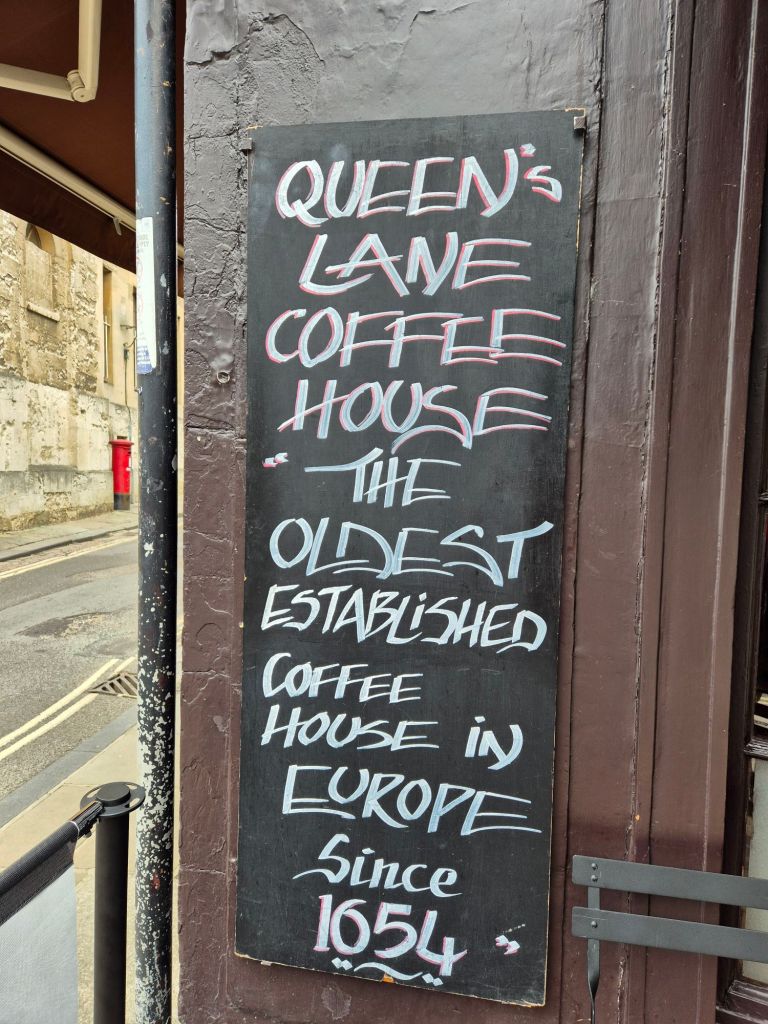 QUEEN's
LANE
COFFEE
HOUSE
"THE
OLDEST
ESTABLiSHED
COFFEE
HOUSE iN
EUROPE
Since
1654"